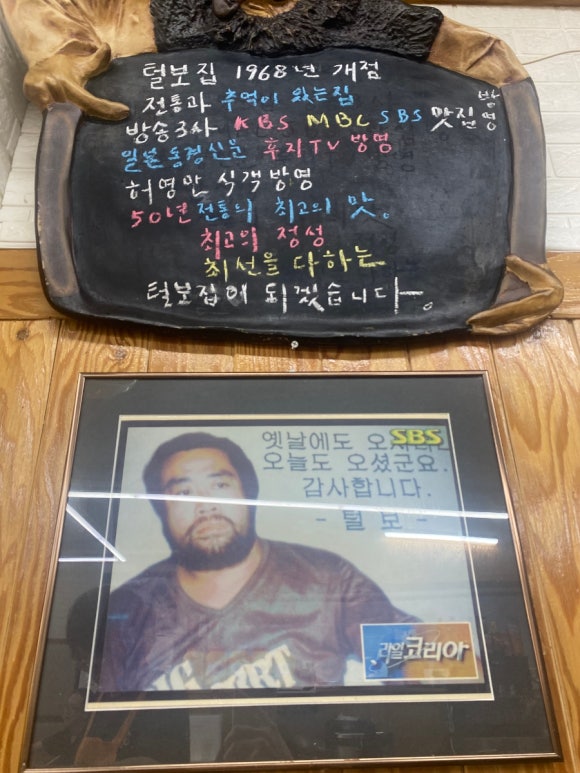 털보집 1968년 개점
전통과 추억이 있는집
방송3사 KBS MBC SBS 맛집 방영
일본동경신문 후지TV 방영
허영만 식객 방영
50년 전통의 최고의 맛.
최고의 정성
최선을 다하는
털보집에 되겠습니다.
SBS
옛날에도
오늘도 오셨군요.
감사합니다.
- 털보 -
리얼코리아